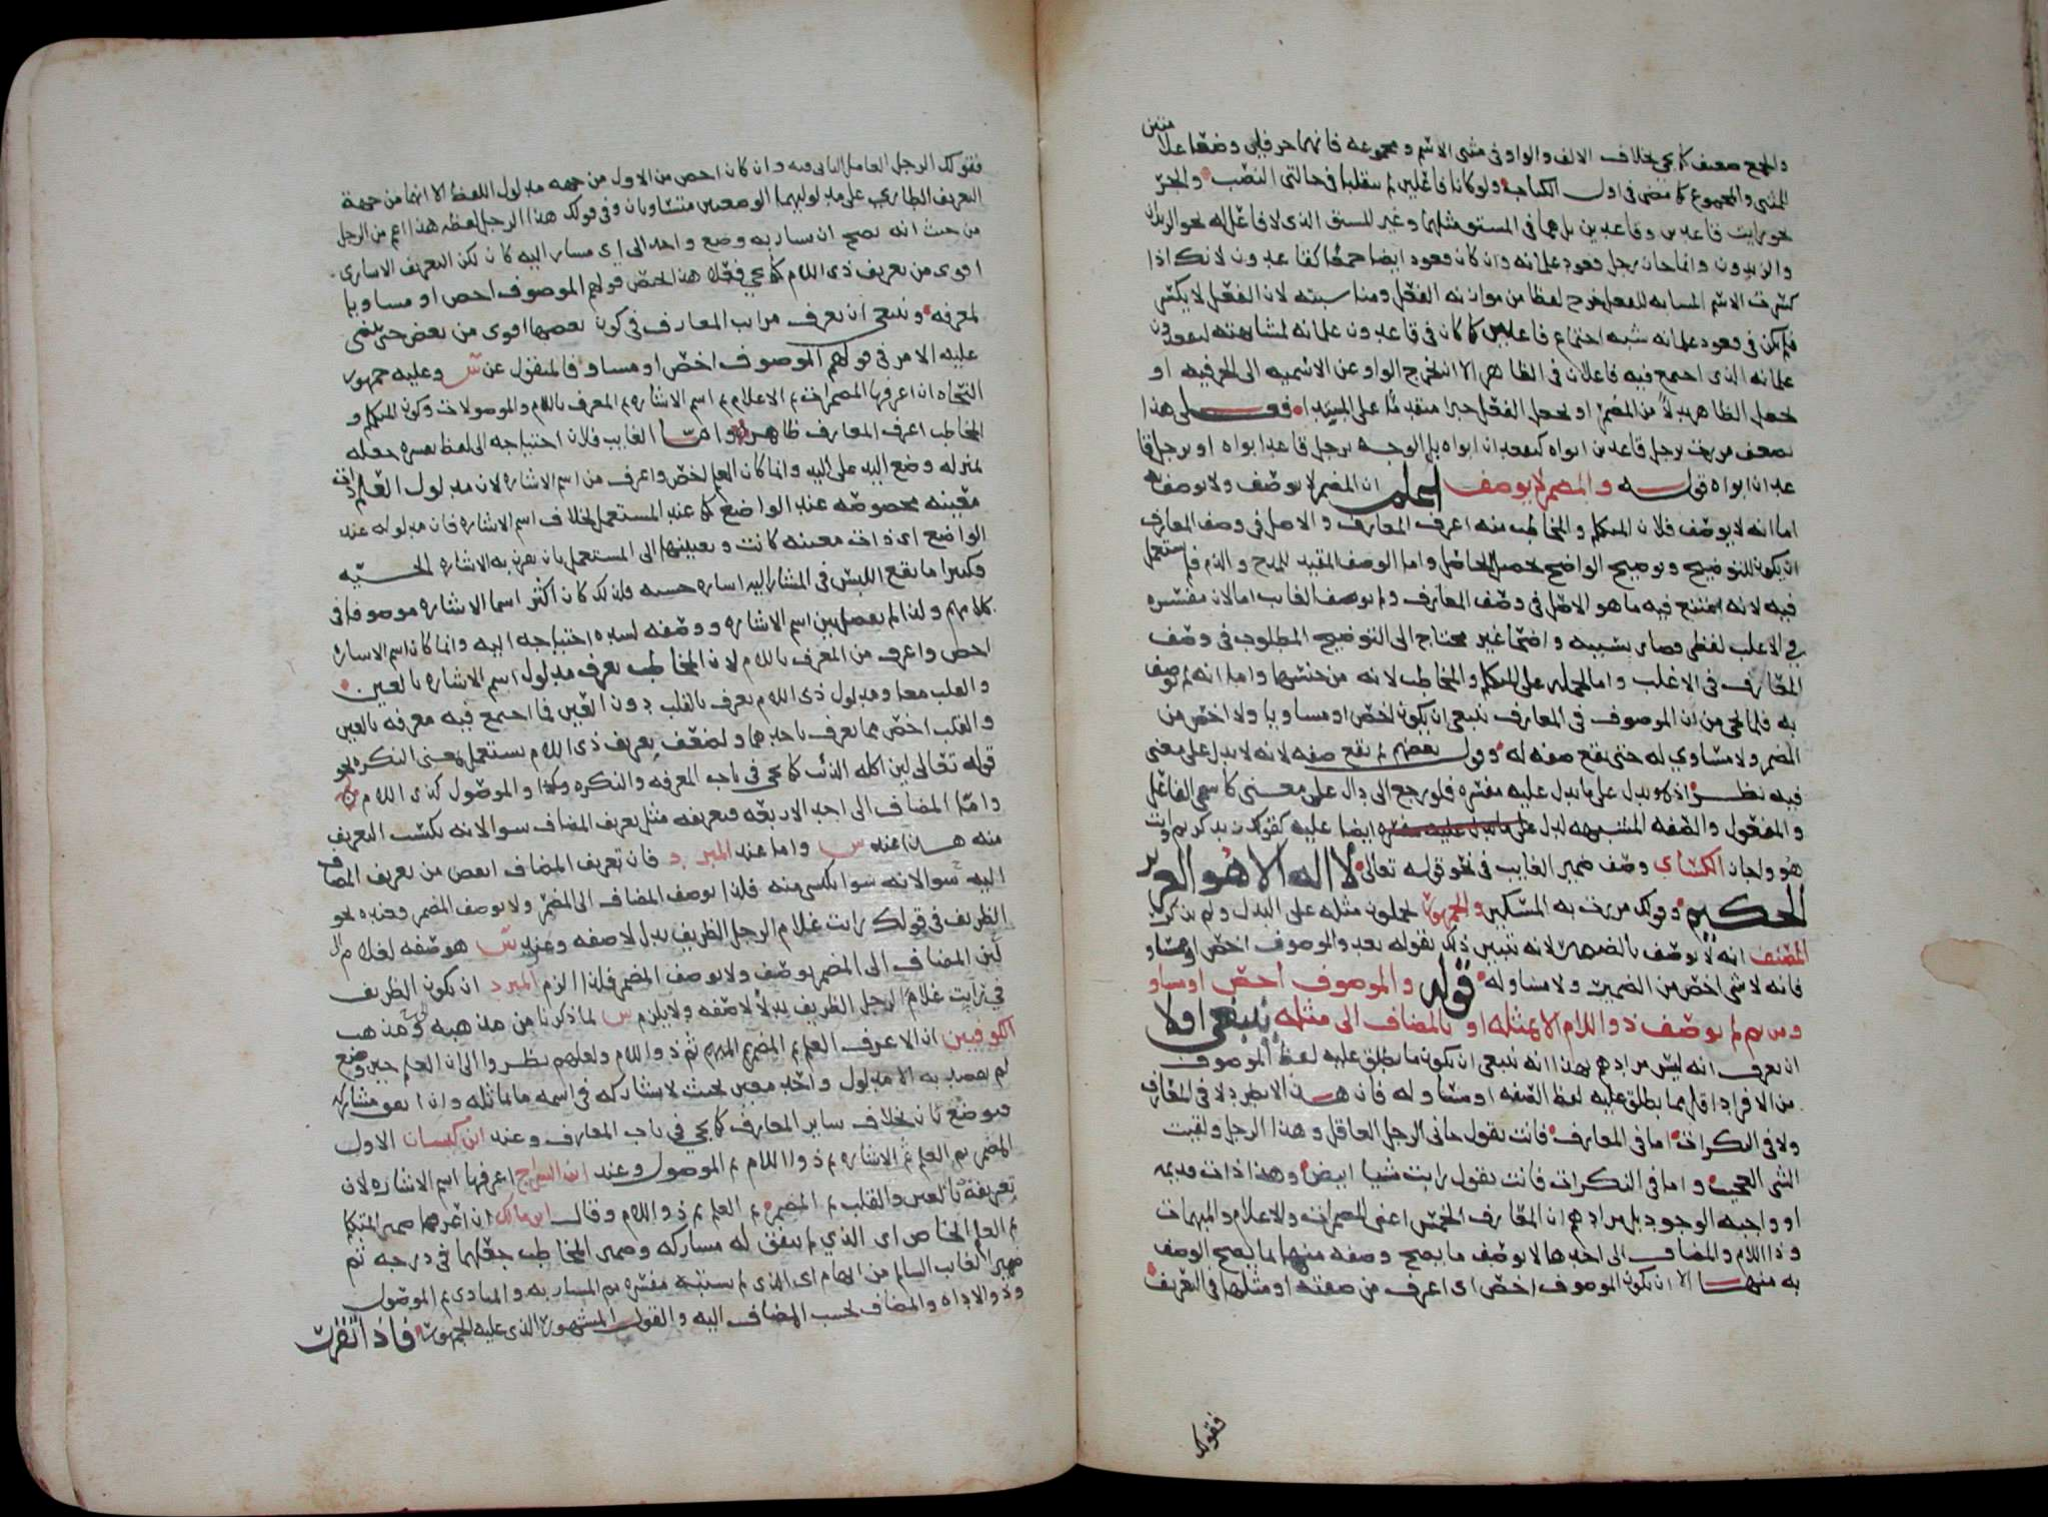 والجمع ضعيف كما يجي بخلاف الالف والواو في مثنى الاسم ومجموعه فانهما حرفان وضعا علامتين
المثنى والمجموع كما مضى في اول الكتاب ولو كانا فاعلين لم ينقلبا في حالتي النصب والجر
نحو رايت قاعدين وقاعدين بل هما في المستو مثلهما وغير المستق الذي لا فاعل له نحو الزيدان
والزيدون وانما جاز برجل قعود غلمانه وان كان قعود ايضا جمعا كقاعدون لانك اذا
كسرت الاسم المشابه للفعل خرج لفظا من موازنه الفعل ومناسبته لان الفعل لا يكسر
فلم يكن في قعود غلمانه شبه اجتماع فاعلين كما كان في قاعدون غلمانه لمشابهته ليقعدون
غلمانه الذي اجتمع فيه فاعلان في الظاهر الا ان نخرج الواو عن الاسميه الى الحرفيه او
نجعل الظاهر بدلا من المضمر او نجعل الفعل خبرا متقدما على المبتدا فعلى هذا
يضعف مررت برجل قاعدين ابواه كيقعدان ابواه بل الوجه برجل قاعد ابواه او برجل قا
عدان ابواه قوله والمضمر لا يوصف اعلم ان المضمر لا يوصف ولا يوصف به
اما انه لا يوصف فلان المتكلم والمخاطب منه اعرف المعارف والاصل في وصف المعارف
ان يكون للتوضيح وتوضيح الواضح تحصيل الحاصل واما الوصف المفيد للمدح والذم فلم يستعمل
فيه لانه امتنع فيه ما هو الاصل في وصف المعارف ولم يوصف الغايب اما لان مفسره
في الاغلب لفظي فصار بسببه واضحا غير محتاج الى التوضيح المطلوب في وصف
المعارف في الاغلب واما لحمله على المتكلم والمخاطب لانه من جنسهما واما انه لم يوصف
به فلما يجي من ان الموصوف في المعارف ينبغي ان يكون اخص او مساويا ولا اخص من
المضمر ولا مساوي له حتى يقع صفه له وقول بعضهم لم يقع صفه لانه لا يدل على معنى
فيه نظر اذ هو يدل على ما يدل عليه مفسره فلو رجع الى دال على معنى كاسمي الفاعل
والمفعول والصفه المشبهه لدل على ما يدل عليه مفسره ايضا عليه كقولك زيد كريم وانت
هو واجاز الكسائي وصف ضمير الغايب في نحو قوله تعالى لا اله الا هو العزيز
الحكيم وقولك مررت به المسكين والجمهور يحملون مثله على البدل ولم يذكر
المصنف انه لا يوصف بالضمير لانه تبين ذلك بقوله بعد والموصوف اخص او مساو
فانه لا شي اخص من الضمير ولا مساو له قوله والموصوف اخص او مساو
ومن ثم لم يوصف ذو اللام الا بمثله او بالمضاف الى مثله ينبغي اولا
ان يعرف انه ليس مرادهم بهذا انه ينبغي ان يكون ما يطلق عليه لفظ الموصوف
من الافراد اقل مما يطلق عليه لفظ الصفه او مساو له فان هذا لا يطرد لا في المعارف
ولا في النكرات اما في المعارف فانت تقول جاني الرجل العاقل وهذا الرجل ولقيت
الشي العجيب واما في النكرات فانت تقول رايت شيا ابيض وهذا ذات قديمه
او واجبه الوجود بل مرادهم ان المعارف الخمس اعني المضمرات والاعلام والمبهمات
وذا اللام والمضاف الى احدها لا يوصف ما يصح وصفه منها بما يصح الوصف
به منها الا ان يكون الموصوف اخص اي اعرف من صفته او مثلها في التعريف
فقولك
فقولك الرجل العاقل الثاني فيه وان كان اخص من الاول من جهه مدلول اللفظ الا انهما من جهة
التعريف الطاري على مدلوليهما الوضعيين متساويان وفي قولك هذا الرجل لفظه هذا اعم من الرجل
من حيث انه يصح ان يشار به وضع واحد الى اي مشار اليه كان لكن التعريف الاشاري
اقوى من تعريف ذي اللام كما يجي فعلى هذا اختص قولهم الموصوف اخص او مساويا
لمعرفه وينبغي ان يعرف مراتب المعارف في كون بعضها اقوى من بعض حتى يبنى
عليه الامر في قولهم الموصوف اخص او مساو فالمنقول عن س وعليه جمهور
النحاه ان اعرفها المضمرات ثم الاعلام ثم اسم الاشاره ثم المعرف باللام والموصولات وكون المتكلم و
المخاطب اعرف المعارف ظاهر واما الغايب فلان احتياجه الى لفظ يفسره جعله
بمنزله وضع اليد على اليد وانما كان العلم اخص واعرف من اسم الاشاره لان مدلول العلم ذات
معينه مخصوصه عند الواضع كما عند المستعمل بخلاف اسم الاشاره فان مدلوله عند
الواضع اي ذات معينه كانت وتعيينها الى المستعمل بان يقرن به الاشاره الحسيه
وكثيرا ما يقع اللبس في المشار اليه اشاره حسيه فلذلك كان اكثر اسما الاشاره موصوفا في
كلامهم ولذا لم يفصل بين اسم الاشاره ووصفه لشده احتياجه اليه وانما كان اسم الاشاره
اخص واعرف من المعرف باللام لان المخاطب يعرف مدلول اسم الاشاره بالعين
والقلب معا ومدلول ذي اللام يعرف بالقلب دون العين فما اجتمع فيه معرفه بالعين
والقلب اخص مما يعرف باحدهما ولضعف تعريف ذي اللام يستعمل بمعنى النكره نحو
قوله تعالى لين اكله الذئب كما يجي في باب المعرفه والنكره وكذا والموصول كذي اللام
واما المضاف الى احد الاربعه فتعريفه مثل تعريف المضاف سوا لانه يكتسب التعريف
منه هذا عند س واما عند المبرد فان تعريف المضاف انقص من تعريف المضاف
اليه سوا لانه يكتسى منه فلذا يوصف المضاف الى المضمر ولا يوصف المضمر وعنده نحو
الظريف في قولك رايت غلام الرجل الظريف بدل لا صفه وعند س هو صفه لغلام
لين المضاف الى المضمر يوصف ولا يوصف المضمر فلذا الزم المبرد ان يكون الظريف
في رايت غلام الرجل الظريف بدلا لا صفه ولا يلزم س لما ذكرنا من مذهبه ومذهب
الكوفيين ان الاعرف العلم ثم المضمر ثم المبهم ثم ذو اللام ولعلهم نظروا الى ان العلم حين وضع
لم يقصد به الا مدلول واحد معين بحيث لا يشاركه في اسمه ما يماثله وان اتفق مشاركه
فبوضع ثان بخلاف ساير المعارف كما يجي في باب المعارف وعند ابن كيسان الاول
المضمر ثم العلم ثم الاشاره ثم ذو اللام ثم الموصول وعند ابن السراج اعرفها اسم الاشاره لان
تعريفه بالعين والقلب ثم المضمر ثم العلم ثم ذو اللام وقال ابن مالك ان اعرفها ضمير المتكلم
ثم العلم الخاص اي الذي لم يتفق له مشارك وضمير المخاطب جعلهما في درجه ثم
ضمير الغايب السالم من ابهام اي الذي لم يشتبه مفسره ثم المشار به والمنادى ثم الموصول
وذو الاداه والمضاف بحسب المضاف اليه والقول المشهور الذي عليه الجمهور فاذا تقررت